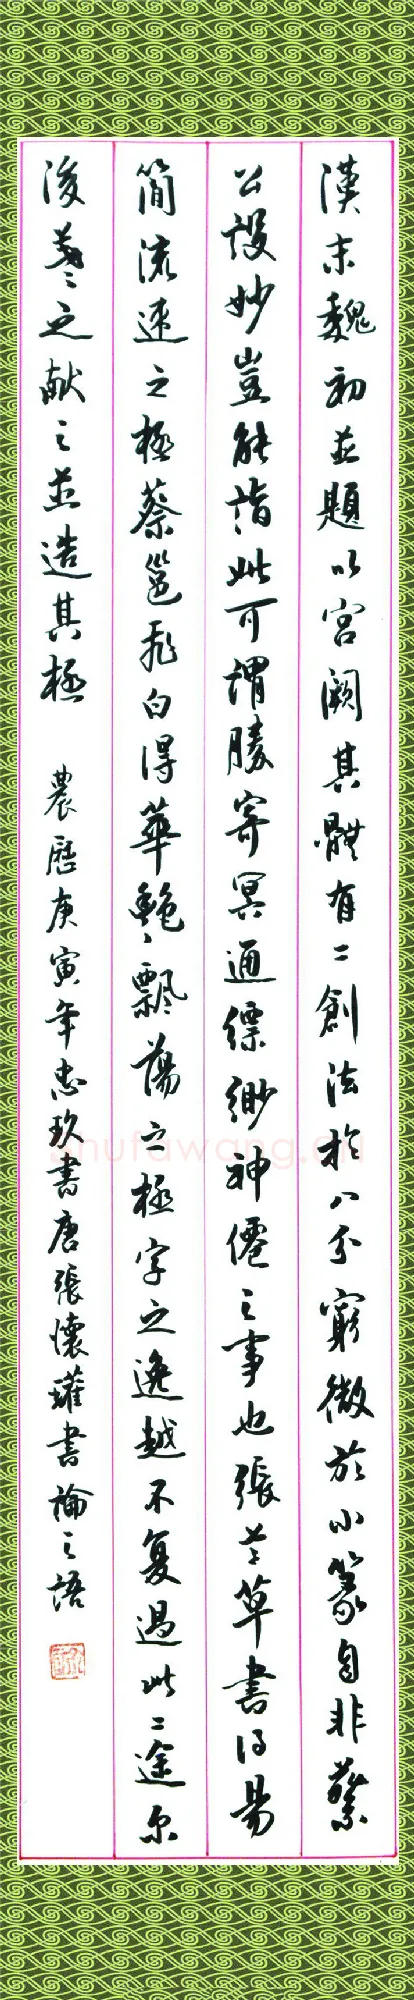 漢末魏初並題以宮闕其體有二創法於八分窮微於小篆自非蔡
公設妙豈能詣此可謂勝寄冥通縹緲神僊之事也張芝草書得易
簡流速之極蔡邕飛白得華艶飄蕩之極字之逸越不复過此二途尔
後羲之献之並造其極
農歷庚寅年忠玖書唐張懷瓘書論之語
shufawang.cn